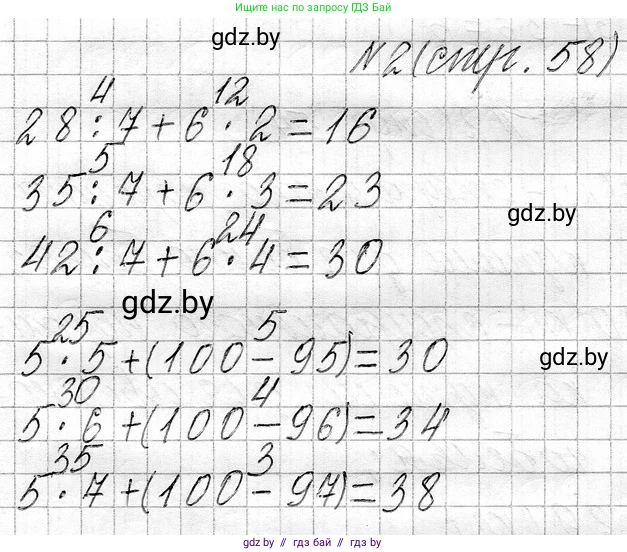 Ищите нас по запросу ГДЗ Бай
gdz.by
№2 (стр. 58)
4 12
28 : 7 + 6 · 2 = 16
5 18
35 : 7 + 6 · 3 = 23
gdz.by
6 24
42 : 7 + 6 · 4 = 30
gdz.by
25 5
5 · 5 + (100 - 95) = 30
gdz.by
30 4
5 · 6 + (100 - 96) = 34
35 3
5 · 7 + (100 - 97) = 38
gdz.by // гдз бай // gdz.by